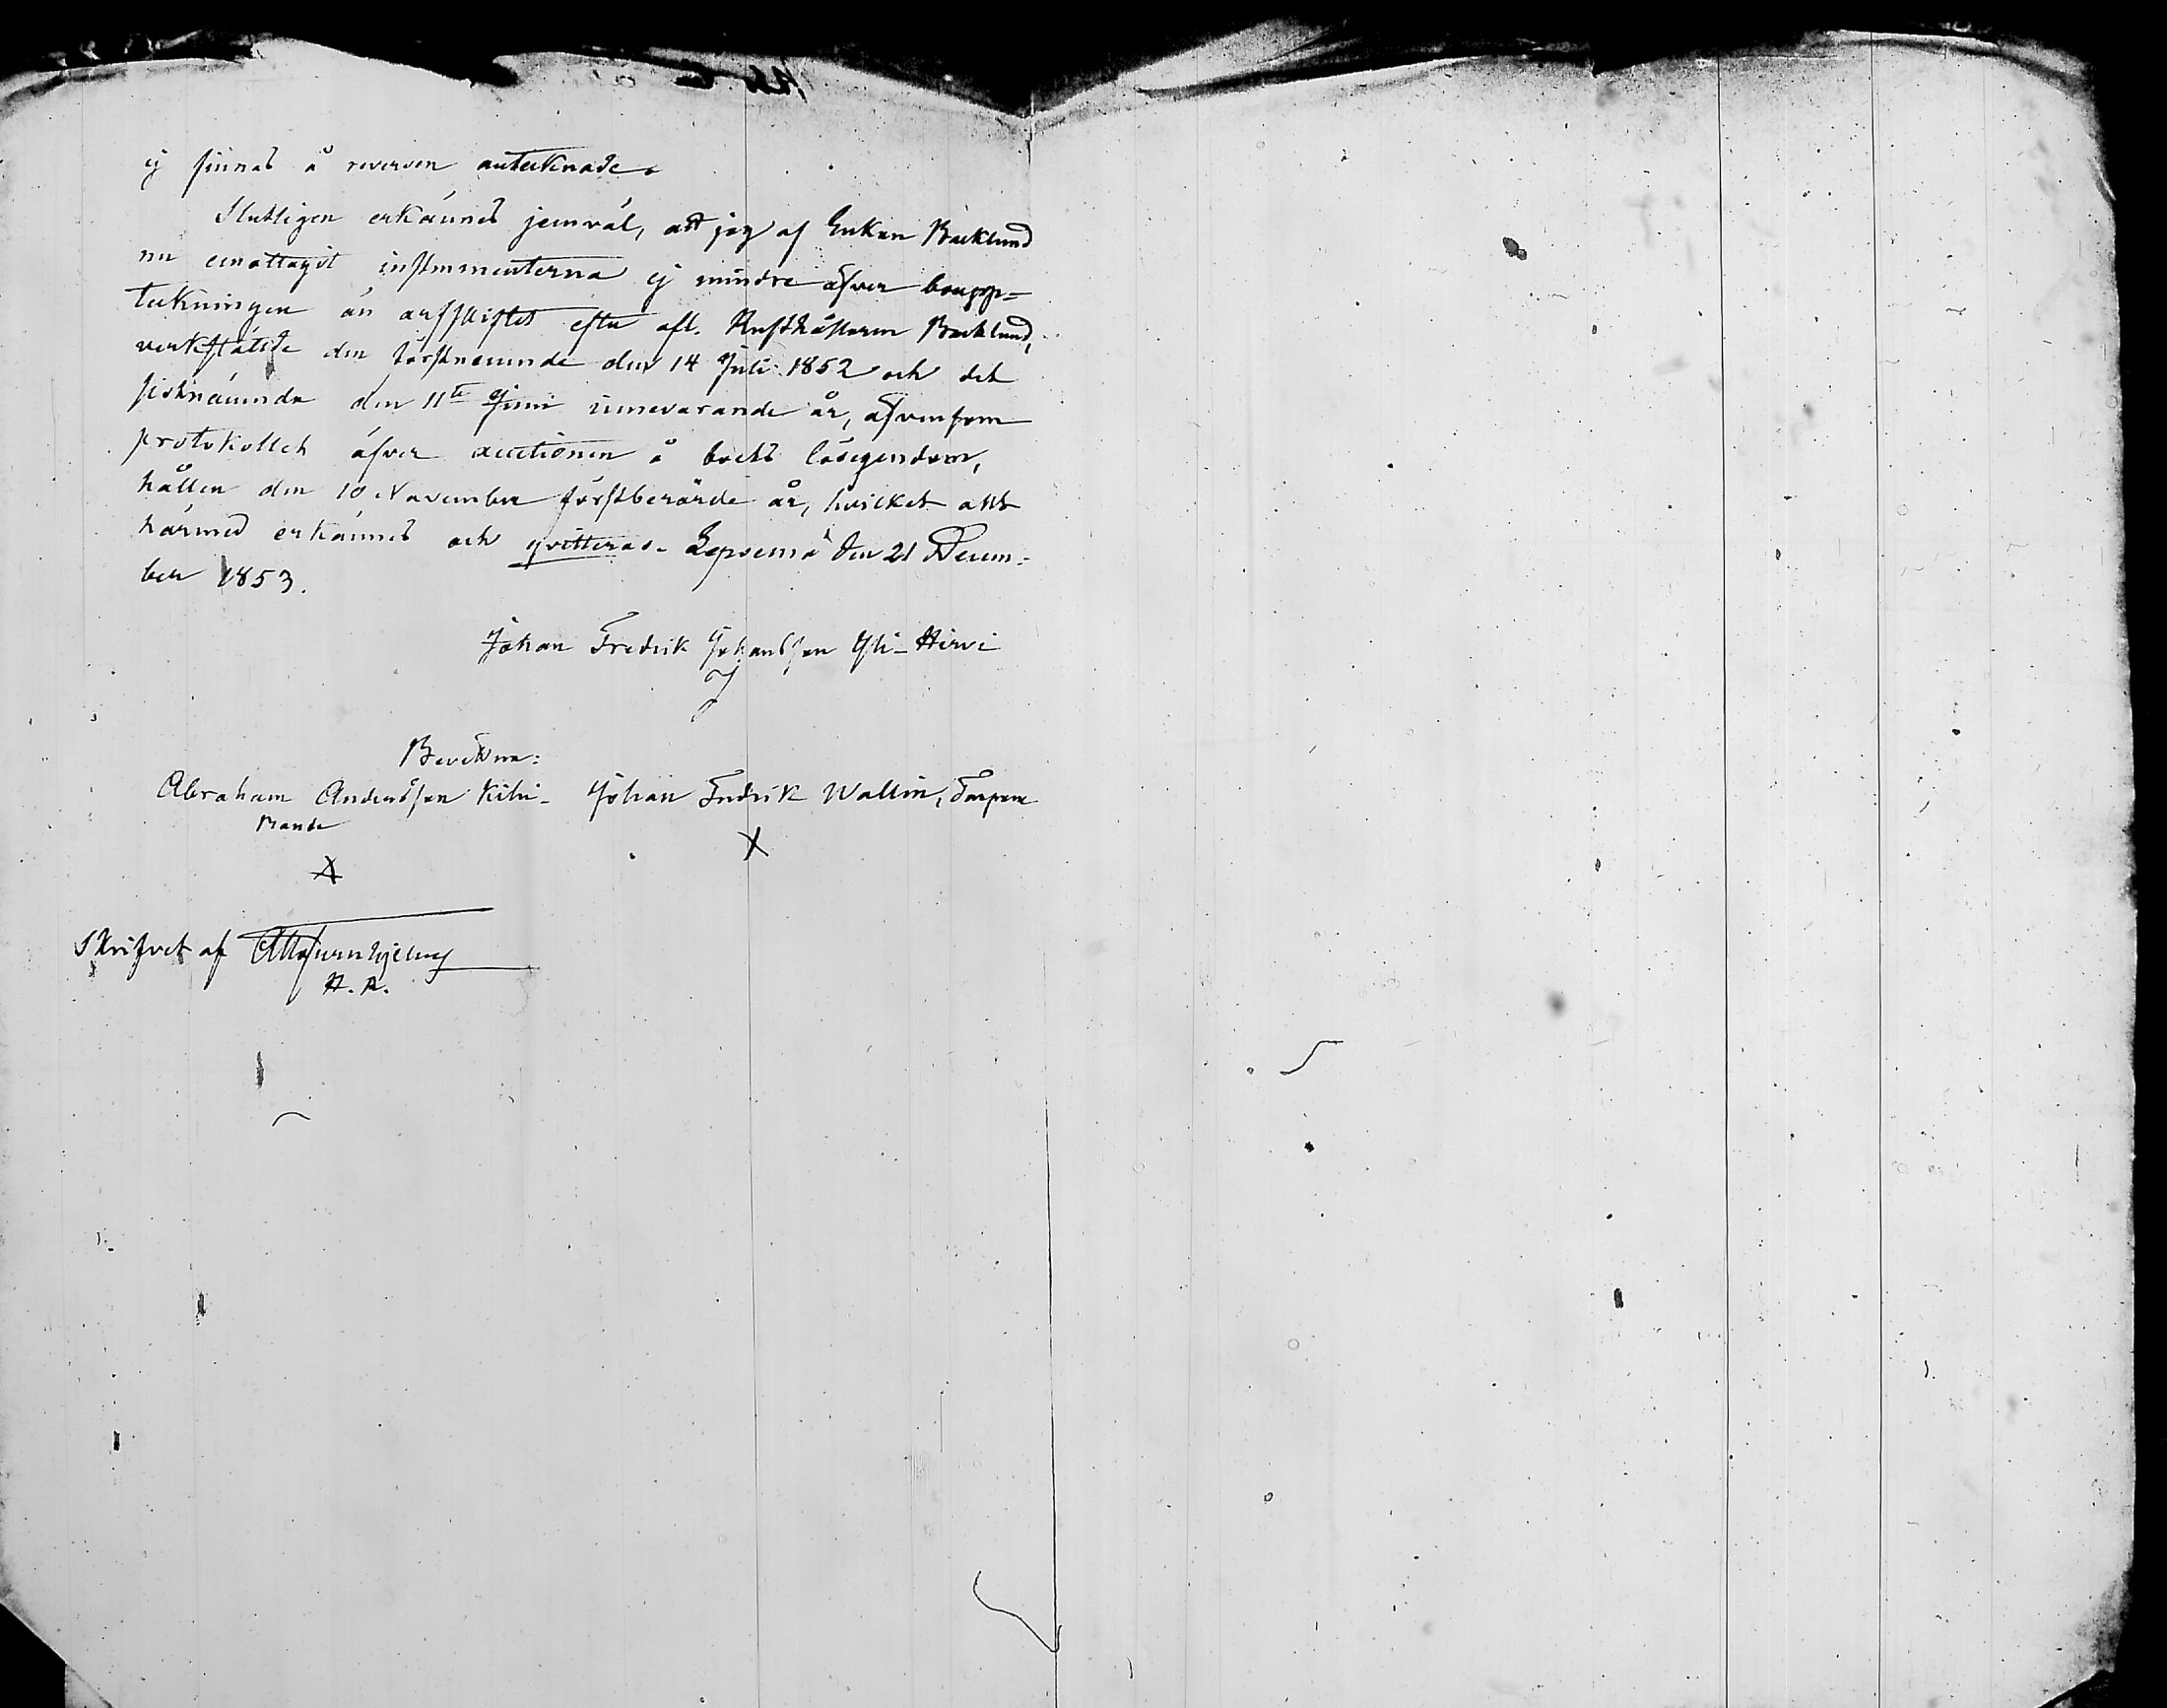 ej finnas å reversen antecknade.
Slutligen erkännes jemväl, att jag af Enkan Backlund
nu emottagit instrumenterna ej mindre öfver boupp=
teckningen än arfskiftet efter afl. Rusthållaren Backlund,
verkstälde den förstnemnde den 14 Juli 1852 och det
sistnämnda den 11te Juni innevarande år, äfvensom
protokollet öfver auctionen å boets lösegendom,
hållen den 10 November förstberörde år, hvilket allt
härmed erkännes och qvitteras. Lepsemä den 21 Decem=
ber 1853.
Johan Fredrik Johansson Yli-Hirvi
Bevittna:
Abraham Andersson Kihi- Johan Fredrik Wallin, Torpare
Bonde
X
Skrifvet af
H. R.